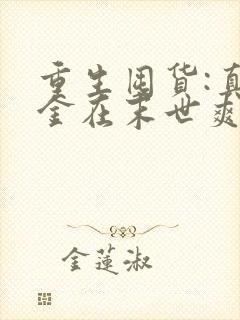 重生囤货:真
金在末世爽
金莲淑